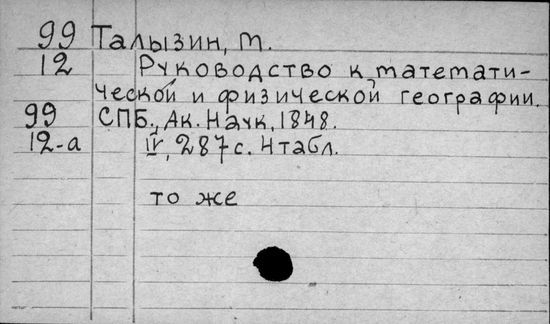 99 Талызин, М.
12 Руководство к математи-
ческой и физической географии.
99 СПБ., Ак. Наук, 1848.
12-а IV, 287 с. 4 табл.
то же